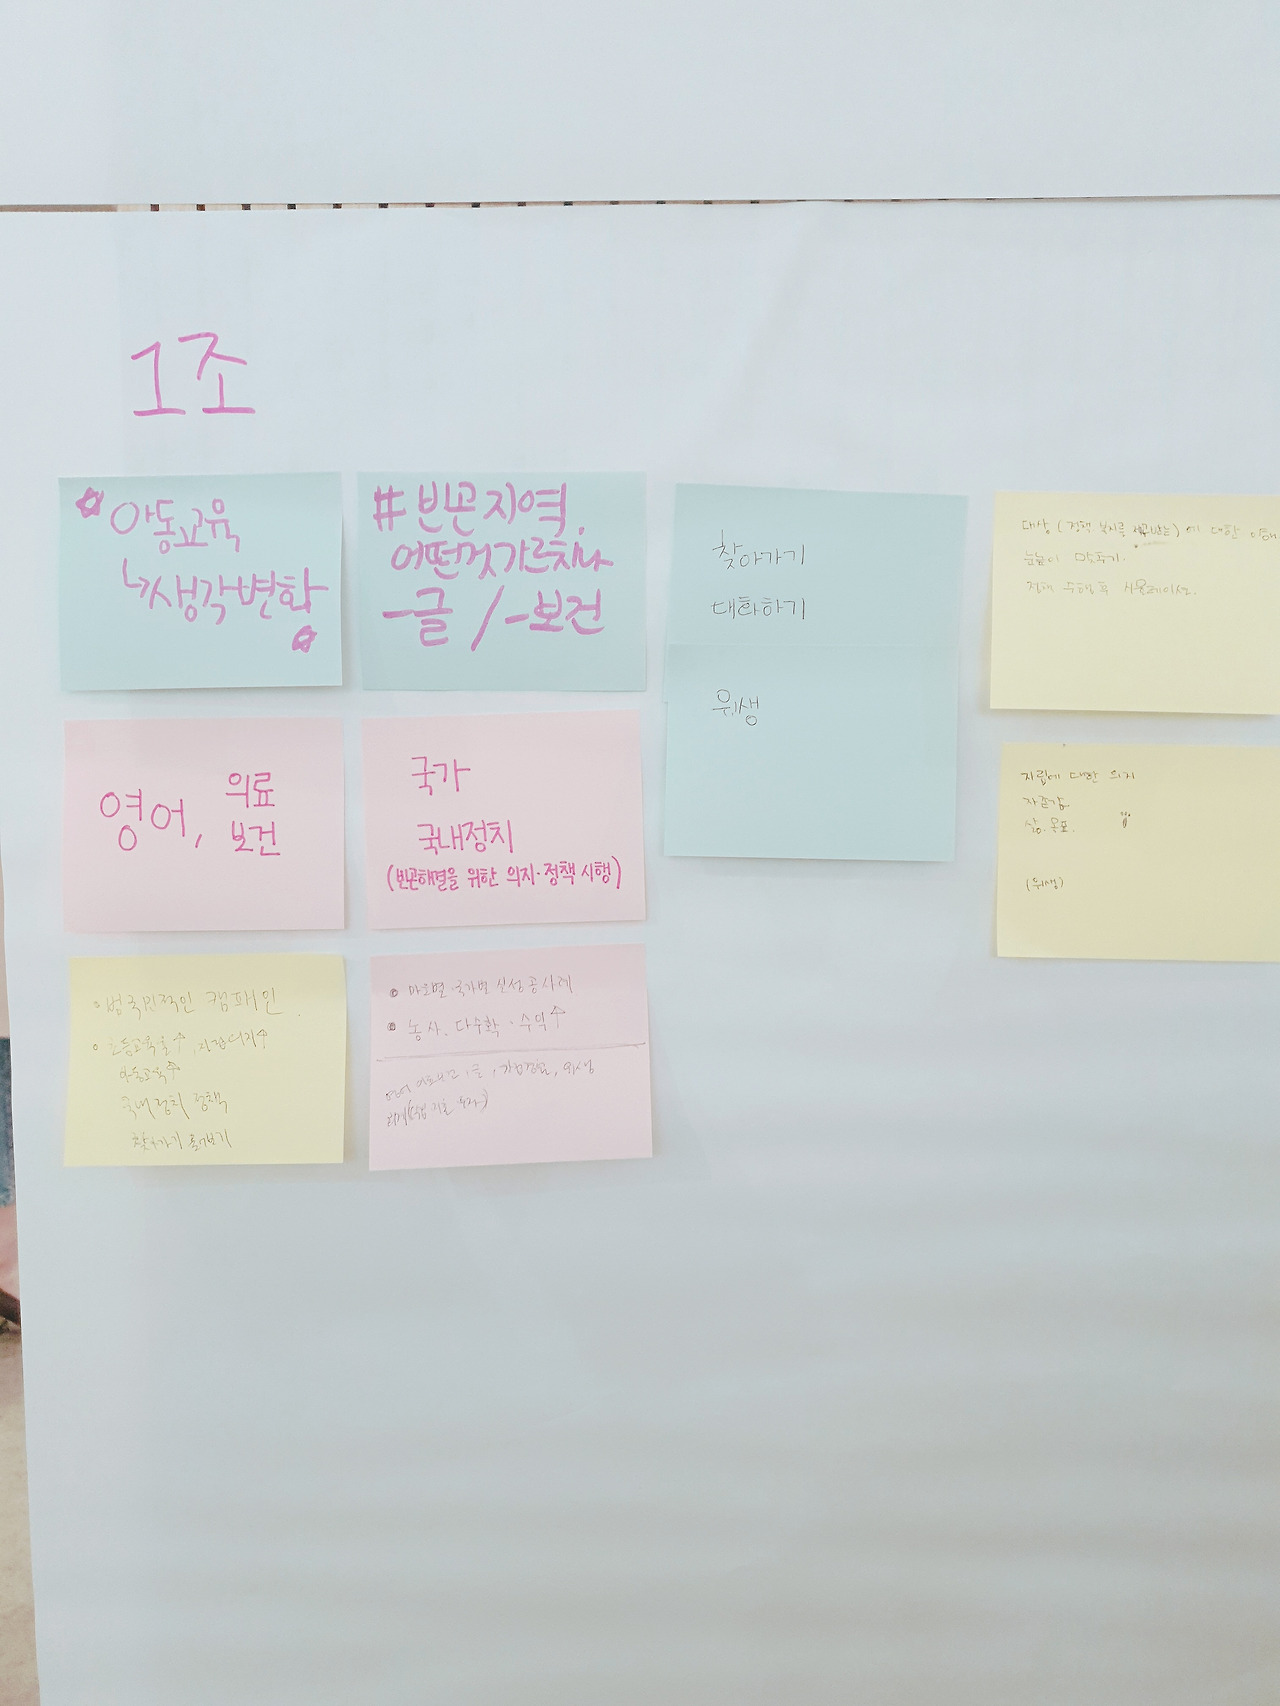 1조
아동교육
↳생각변화
# 빈곤지역.
어떤것가르치나
-글 / -보건
찾아가기
대화하기
위생
대상 (정책 복지를 받는)에 대한 이해
눈높이 맞추기.
정책 수행 후 시뮬레이션.
영어, 의료
보건
국가
국내정치
(빈곤해결을 위한 의지·정책 시행)
자립에 대한 의지
자존감
삶. 목표.
(위생)
• 범국민적인 캠페인
• 초등교육율↑,
아동교육↑
국내정치 정책
찾아가기 돌아보기
• 마을별·국가별 실성공사례
• 농사. 다수확·수익↑
위생